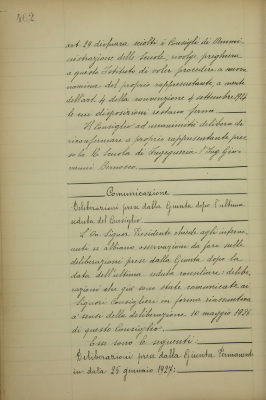 art. 29 dispone sciolti i Consigli di Ammini-
strazione delle Scuole, rivolge preghiera
a questo Istituto di voler procedere a nuova
nomina del proprio rappresentante, a mente
dell'art. 4 della convenzione 4 settembre 1924
le cui disposizioni restano ferme.
Il Consiglio ad unanimità delibera di
riconfermare a proprio rappresentante pres
so la R. Scuola di Ingegneria l'Ing. Gio-
vanni
Comunicazione
Deliberazioni prese dalla Giunta dopo l'ultima
seduta del Consiglio.
L'On. Signor Presidente chiede agli interve-
nuti se abbiano osservazioni da fare sulle
deliberazioni prese dalla Giunta dopo la
data dell'ultima seduta consiliare: delibe-
razioni che già sono state comunicate ai
Signori Consiglieri in forma riassuntiva
a senso della deliberazione 10 maggio 1926
di questo Consiglio.
Esse sono le seguenti:
Deliberazioni prese dalla Giunta Permanente
in data 25 gennaio 1927: